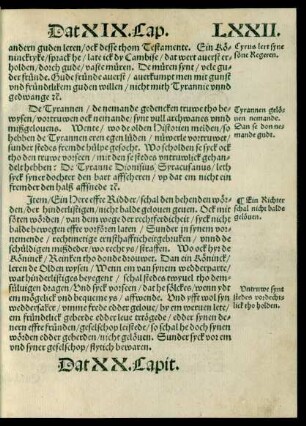 Dat XIX. Cap. LXXII.
andern guden leren/ ock desse thom Testamente. Ein Kö-
ninckryke/ sprack he/ late ick dy Cambise/ dat wert auerst er-
holden/ dorch gude/ vaste müren. De müren synt/ vele gu-
der fründe. Gude fründe auerst/ auerkumpt men mit gunst
vnd fründtliken guden willen/ nicht mith Tyrannie vnnd
gedwange ꝛc.
Cyrus lert syne
söne Regeren.
De Tyrannen/ de nemande gedencken truwe tho be-
wysen/ vortruwen ock nemande/ synt vull archwanes vnnd
mißgelouens. Wente/ wo de olden Historien melden/ so
hebben de Tyrannen eren egen lüden/ nüwerle vortruwet/
sunder stedes frembde hülpe gesocht. Wo scholden se syck ock
tho den truwe vorseen/ mit den se stedes vntruwlick gehan-
delt hebben: De Tyranne Dionysius Syracusanus/ leth
syck syner dochter den bart affscheren/ vp dat em nicht ein
fremder den halß affsnede ꝛc.
Tyrannen gelö-
uen nemande.
Dan se don nes
mande gudt.
Item/ Ein Here effte Ridder/ schal den behenden wör-
den/ edder hinderstelligen/ nicht balde gelouen geuen. Ock mit
söten wörden/ van dem wege der rechtferdicheit/ syck nicht
balde bewegen effte vorfören laten/ Sunder in synem vor-
nemende/ rechtmetiger ernsthafftich eit gebruken/ vnnd de
schüldigen mißdeder/ wo recht ys/ straffen. Wo ock hyr de
Köninck/ Reinken tho donde drouwet. Dan ein Köninck/
leren de Olden wysen/ Wenn em van synem wedderparte/
wat hinderstelliges begenet/ schal stedes rewich tho dem-
süluigen dragen/ Vnd syck vorseen/ dat he sölckes/ wenn yde
em mögelick vnd bequeme ys/ affwende. Vnd yfft wol syn
weddersaker/ vmme frede edder geloue/ by em weruen lete/
em fründtlick geherde edder leue togöge/ edder synen de-
neren effte fründen/ geselschop leistede/ so schal he doch synen
wörden edder geberden/ nicht gelöuen. Sunder syck vor em
vnd syner geselschop/ flytich bewaren.
¶ Ein Richter
schal nicht balde
gelöuen.
Vntruwe synt
stedes vordech-
lick tho holden.
Dat XX. Capit.